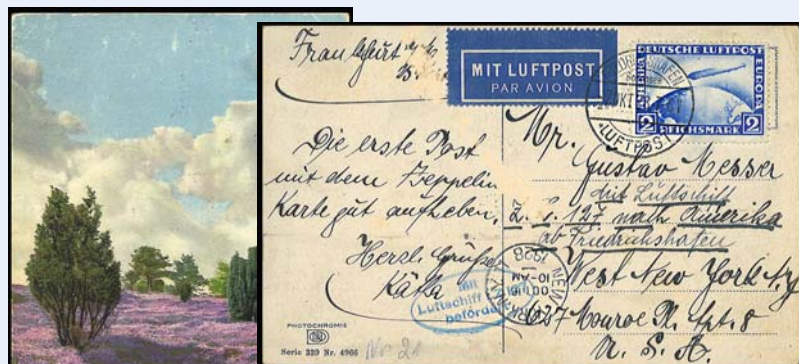 Frankfurt
MIT LUFTPOST
PAR AVION
DEUTSCHE LUFTPOST
EUROPA
2 REICHSMARK 2
LUFTPOST
Die erste Post
mit dem Zeppelin
Karte gut aufheben,
Herzl. Grüße
Käthe
Mr.
Gustav Messer
mit Luftschiff
L. Z. 127 nach Amerika
ab Friedrichshafen
West New York N.Y.
637 Monroe Pl. Apt. 8
U. S. A.
NEW
1928
Mit
Luftschiff
befördert
PHOTOCHROMIE
Serie 239 Nr. 4966
Nr 21